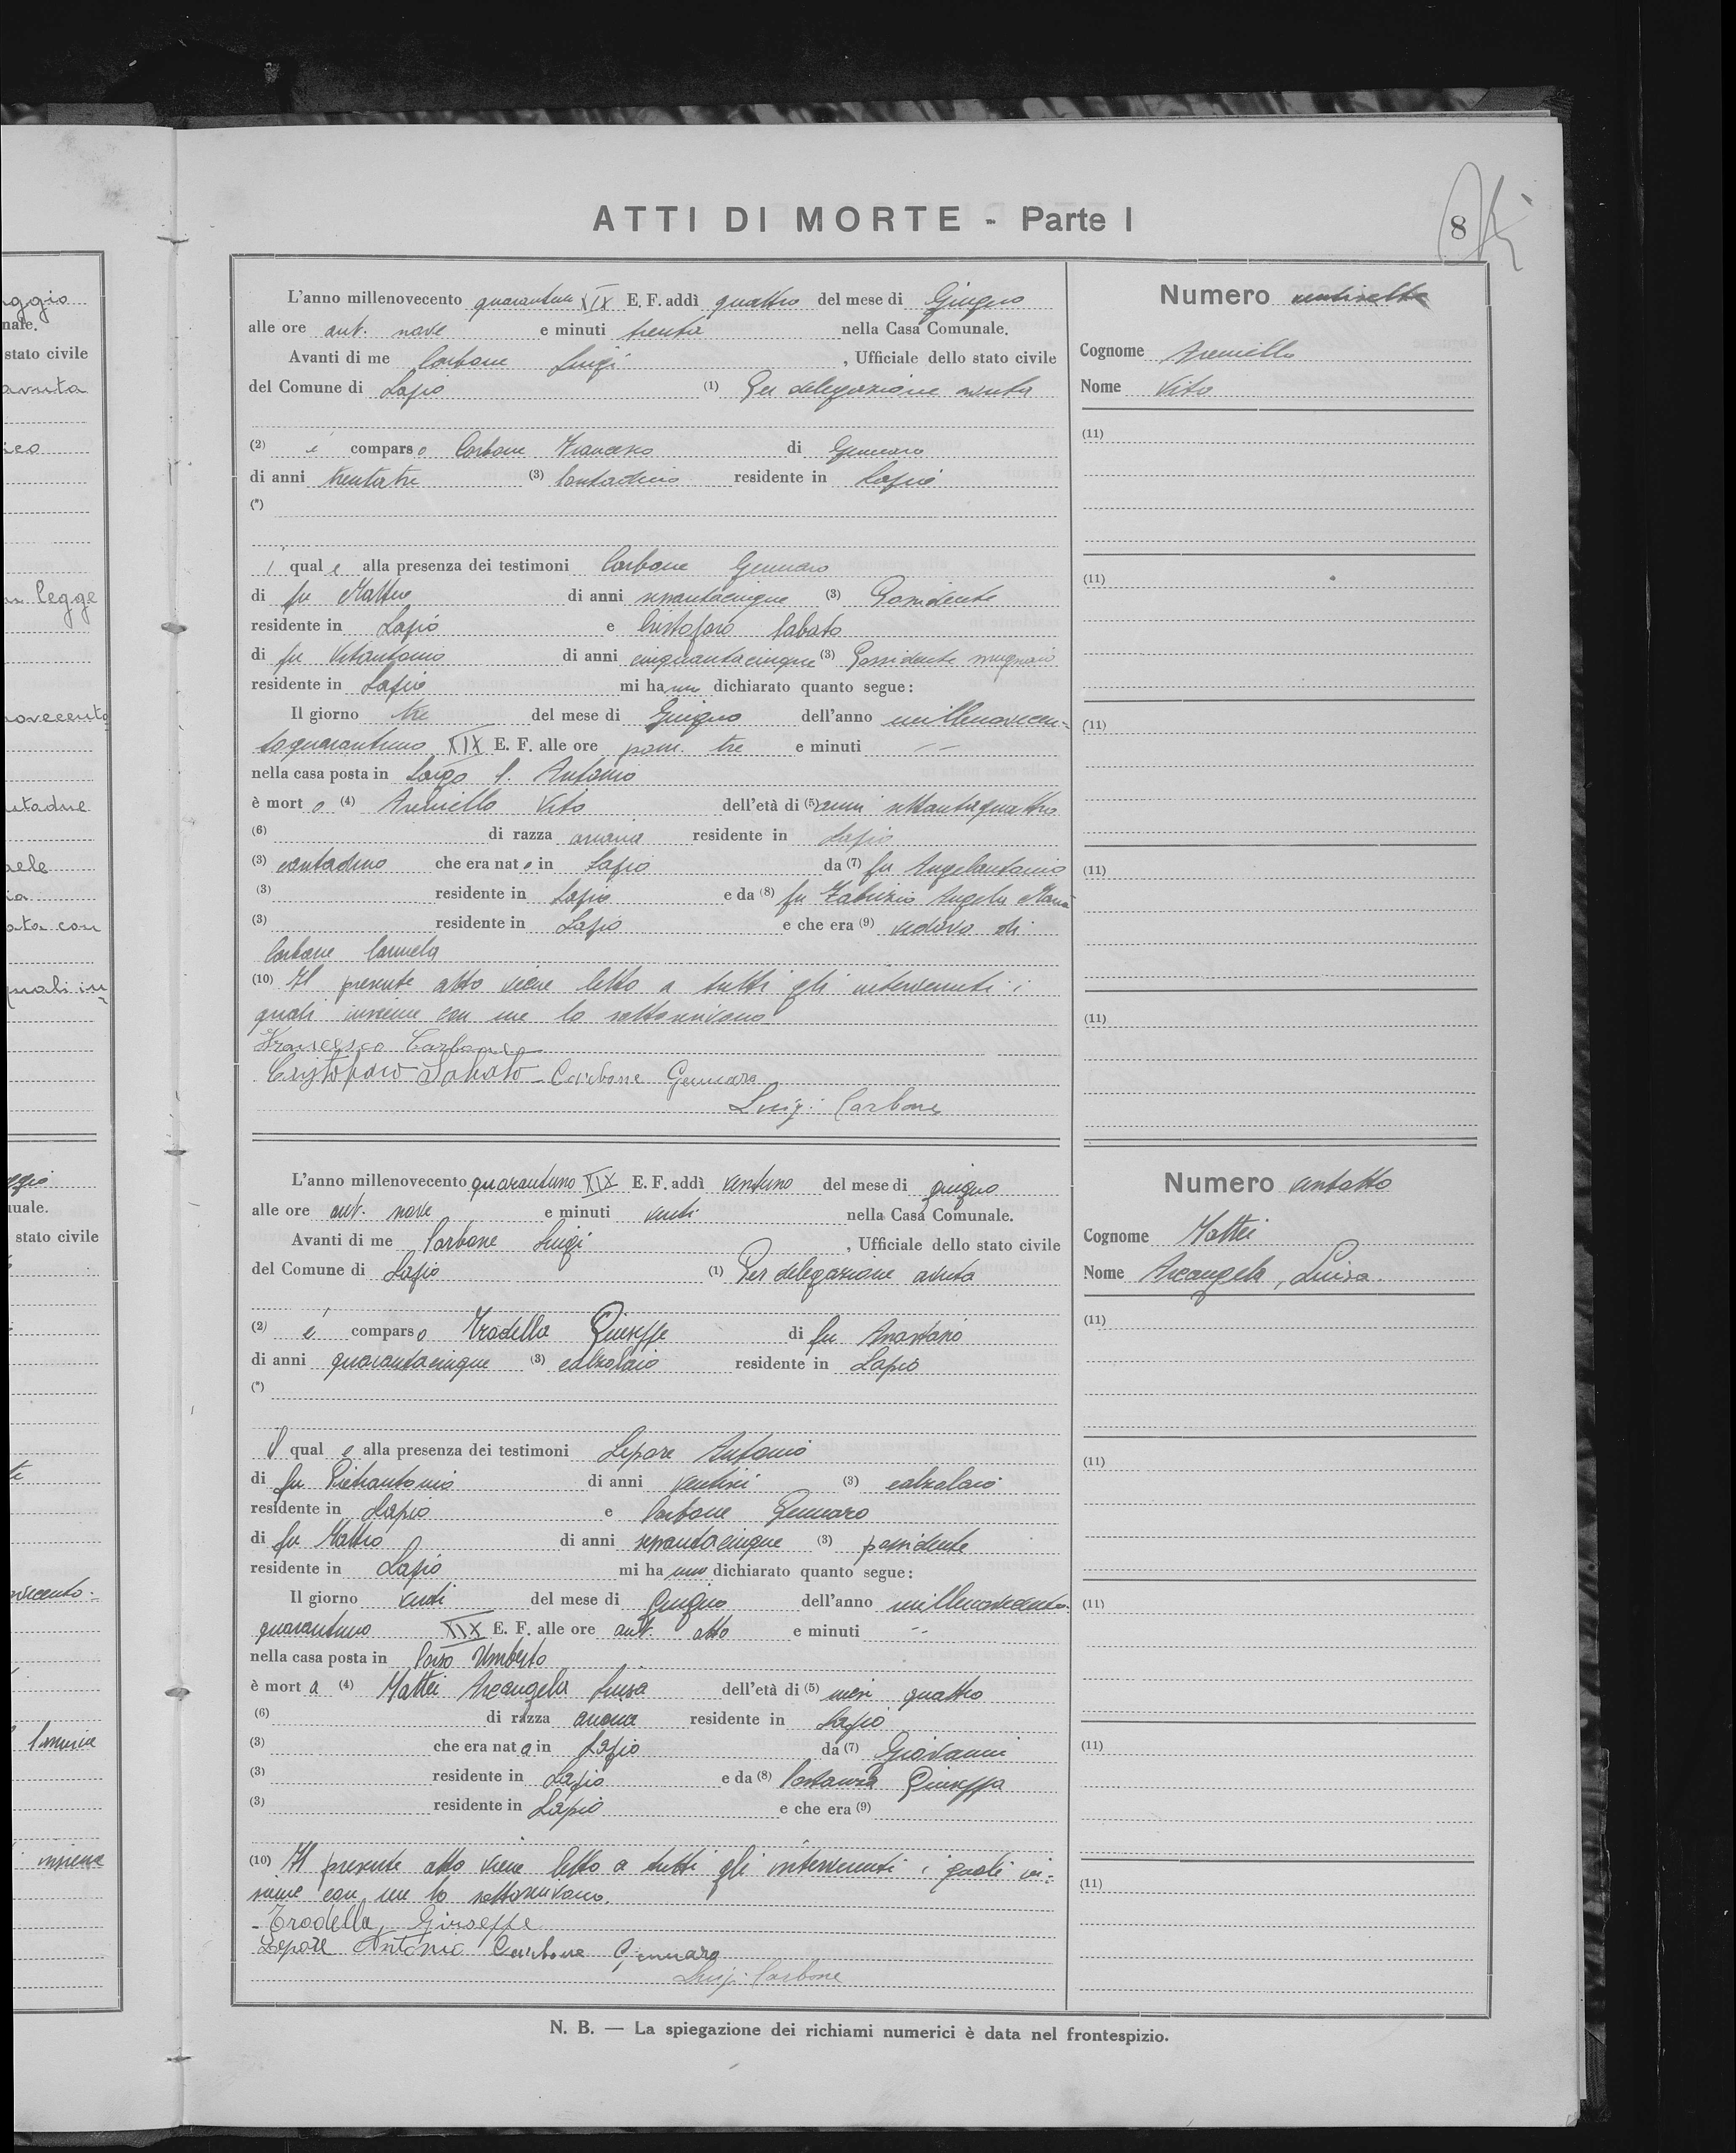 ATTI DI MORTE - Parte I
8
L'anno millenovecento quarantuno XIX E. F. addì quattro del mese di Giugno
alle ore ant. nove e minuti trenta nella Casa Comunale.
Avanti di me Carbone Luigi, Ufficiale dello stato civile
del Comune di Lapio (1) Per delegazione avuta
(2) è comparso Carbone Francesco di Gennaro
di anni trentatre (3) contadino residente in Lapio
(*)
i qual e alla presenza dei testimoni Carbone Gennaro
di fu Matteo di anni sessantacinque (3) Possidente
residente in Lapio e Cristofaro Sabato
di fu Vitantonio di anni cinquantacinque (3) Possidente mugnaio
residente in Lapio mi hanno dichiarato quanto segue:
Il giorno tre del mese di Giugno dell'anno millenovecen-
toquarantuno XIX E. F. alle ore pom. tre e minuti --
nella casa posta in Largo S. Antonio
è morto (4) Vito dell'età di (5) anni settantaquattro
(6) di razza ariana residente in Lapio
(3) contadino che era nato in Lapio da (7) fu Angelantonio
(3) residente in Lapio e da (8) fu Fabrizio Angela Maria
(3) residente in Lapio e che era (9) vedovo di
Carbone Carmela
(10) Il presente atto viene letto a tutti gli intervenuti i
quali insieme con me lo sottoscrivono
Francesco Carbone
Cristofaro Sabato - Carbone Gennaro
Luigi Carbone
Numero ventisette
Cognome
Nome Vito
(11)
(11)
(11)
(11)
(11)
L'anno millenovecento quarantuno XIX E. F. addì ventuno del mese di giugno
alle ore ant. nove e minuti venti nella Casa Comunale.
Avanti di me Carbone Luigi, Ufficiale dello stato civile
del Comune di Lapio (1) Per delegazione avuta
(2) è comparso Trodella Giuseppe di fu Anastasio
di anni quarantacinque (3) calzolaio residente in Lapio
(*)
Il qual e alla presenza dei testimoni Lepore Antonio
di fu Pietrantonio di anni ventisei (3) calzolaio
residente in Lapio e Carbone Gennaro
di fu Matteo di anni sessantacinque (3) possidente
residente in Lapio mi hanno dichiarato quanto segue:
Il giorno venti del mese di Giugno dell'anno millenovecento
quarantuno XIX E. F. alle ore ant. otto e minuti --
nella casa posta in Corso Umberto
è morta (4) Mattei Arcangela Luisa dell'età di (5) mesi quattro
(6) di razza ariana residente in Lapio
(3) che era nata in Lapio da (7) Giovanni
(3) residente in Lapio e da (8) Costanza Giuseppa
(3) residente in Lapio e che era (9)
(10) Il presente atto viene letto a tutti gli intervenuti i quali in-
sieme con me lo sottoscrivono.
- Trodella Giuseppe
Lepore Antonio Carbone Gennaro
Luigi Carbone
Numero ventotto
Cognome Mattei
Nome Arcangela, Luisa.
(11)
(11)
(11)
(11)
(11)
N. B. — La spiegazione dei richiami numerici è data nel frontespizio.